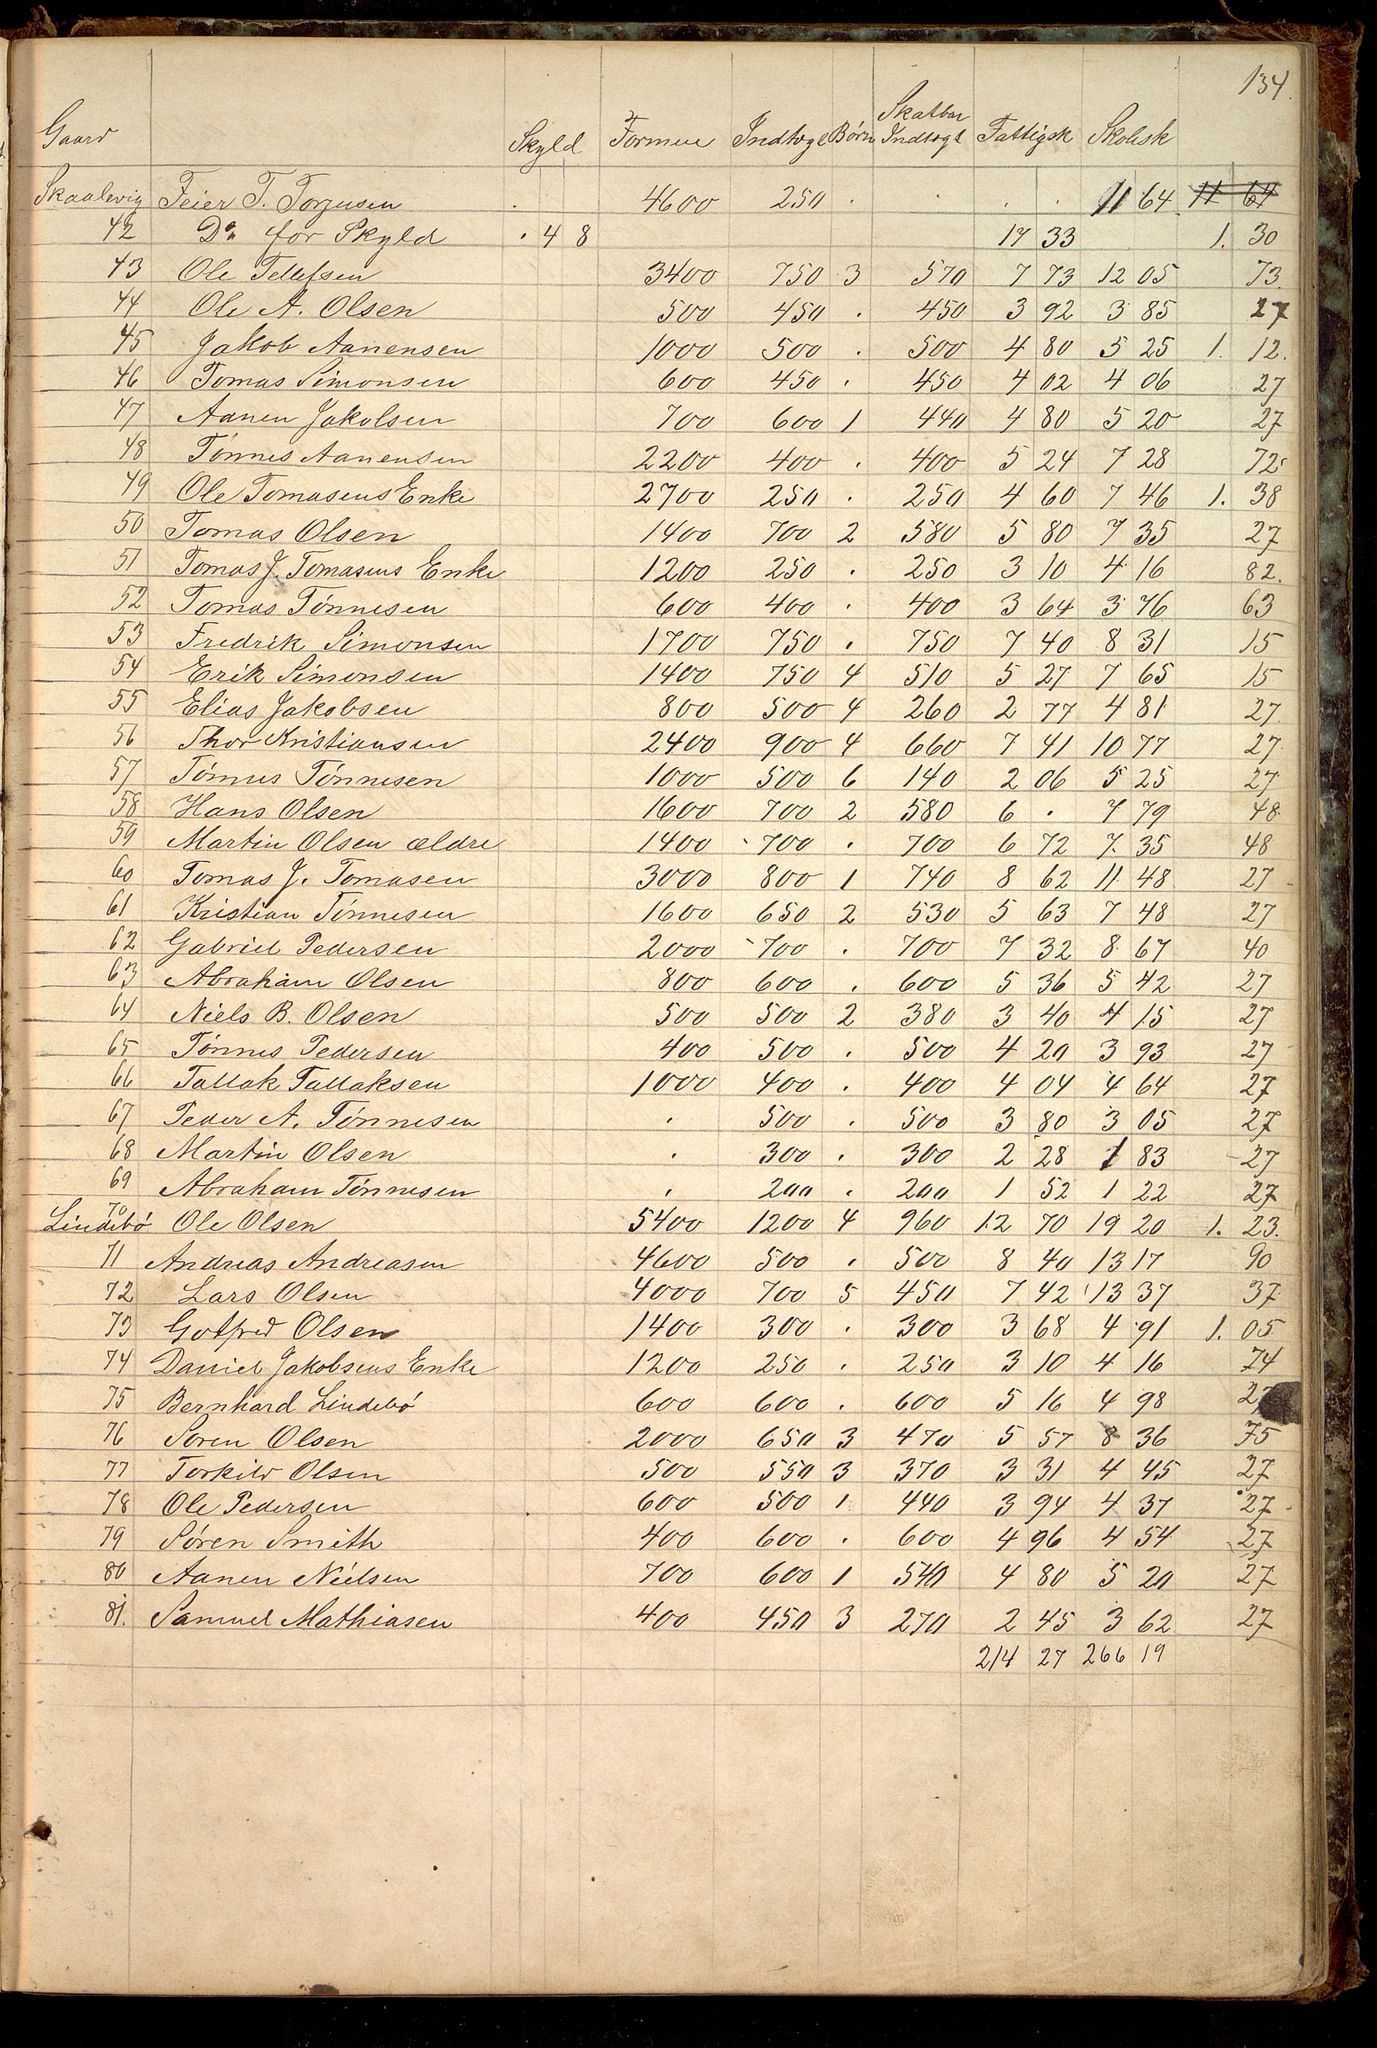 134.
Gaard Skyld Formue Indtægt Børn Skatbar Indtægt Fattigsk Skolesk
Skaalevig Feier T. Torjusen . 4600 250 . . . . 11 64 11 64
42 Do for Skyld . 4 8 17 33 1. 30
43 Ole Tellefsen 3400 750 3 570 7 73 12 05 73
44 Ole A. Olsen 500 450 . 450 3 92 3 85 27
45 Jakob Aanensen 1000 500 . 500 4 80 5 25 1. 12.
46 Tomas Simonsen 600 450 . 450 4 02 4 06 27
47 Aanen Jakobsen 700 600 1 440 4 80 5 20 27
48 Tønnes Aanensen 2200 400 . 400 5 24 7 28 72
49 Ole Tomasens Enke 2700 250 . 250 4 60 7 46 1. 38
50 Tomas Olsen 1400 700 2 580 5 80 7 35 27
51 Tomas J. Tomasens Enke 1200 250 . 250 3 10 4 16 82.
52 Tomas Tønnesen 600 400 . 400 3 64 3 76 63
53 Fredrik Simonsen 1700 750 . 750 7 40 8 31 15
54 Erik Simonsen 1400 750 4 510 5 27 7 65 15
55 Elias Jakobsen 800 500 4 260 2 77 4 81 27
56 Thor Kristiansen 2400 900 4 660 7 41 10 77 27
57 Tønnes Tønnesen 1000 500 6 140 2 06 5 25 27
58 Hans Olsen 1600 700 2 580 6 . 7 79 48
59 Martin Olsen ældre 1400 700 . 700 6 72 7 35 48
60 Tomas J. Tomasen 3000 800 1 740 8 62 11 48 27
61 Kristian Tønnesen 1600 650 2 530 5 63 7 48 27
62 Gabriel Pedersen 2000 700 . 700 7 32 8 67 40
63 Abraham Olsen 800 600 . 600 5 36 5 42 27
64 Niels B. Olsen 500 500 2 380 3 40 4 15 27
65 Tønnes Pedersen 400 500 . 500 4 20 3 93 27
66 Tallak Tallaksen 1000 400 . 400 4 04 4 64 27
67 Peder A. Tønnesen . 500 . 500 3 80 3 05 27
68 Martin Olsen . 300 . 300 2 28 1 83 27
69 Abraham Tønnesen . 200 . 200 1 52 1 22 27
Lindebø 70 Ole Olsen 5400 1200 4 960 12 70 19 20 1. 23.
71 Andreas Andreasen 4600 500 . 500 8 40 13 17 90
72 Lars Olsen 4000 700 5 450 7 42 13 37 37
73 Gotfred Olsen 1400 300 . 300 3 68 4 91 1. 05
74 Daniel Jakobsens Enke 1200 250 . 250 3 10 4 16 74
75 Bernhard Lindebø 600 600 . 600 5 16 4 98 27
76 Søren Olsen 2000 650 3 470 5 57 8 36 75
77 Torkild Olsen 500 550 3 370 3 31 4 45 27
78 Ole Pedersen 600 500 1 440 3 94 4 37 27
79 Søren Smith 400 600 . 600 4 96 4 54 27
80 Aanen Nielsen 700 600 1 540 4 80 5 20 27
81. Samuel Mathiasen 400 450 3 270 2 45 3 62 27
214 27 266 19